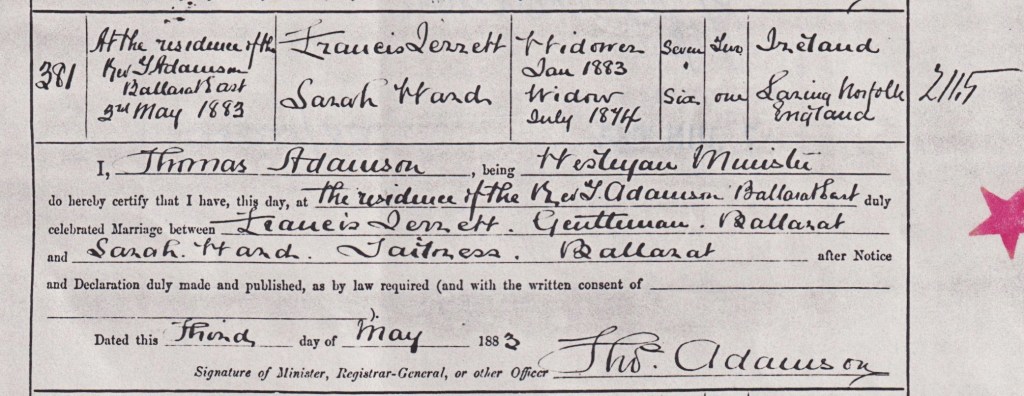 381
At the residence of the
Rev T Adamson
Ballarat East
3rd May 1883
Francis Jerrett
Sarah Ward
Widower
Jan 1883
Widow
July 1874
Seven Two
Six one
Ireland
Norfolk
England
I, Thomas Adamson, being Wesleyan Minister
do hereby certify that I have, this day, at the residence of the Rev T. Adamson Ballarat East duly
celebrated Marriage between Francis Jerrett. Gentleman. Ballarat
and Sarah Ward. Tailoress. Ballarat after Notice
and Declaration duly made and published, as by law required (and with the written consent of
).
Dated this Third day of May 1883
Thos. Adamson
Signature of Minister, Registrar-General, or other Officer